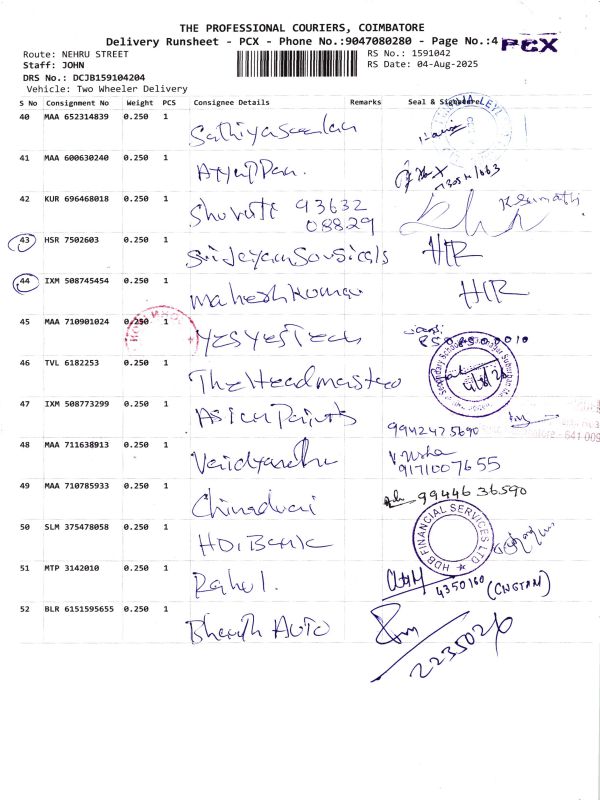 THE PROFESSIONAL COURIERS, COIMBATORE
Delivery Runsheet - PCX - Phone No.:9047080280 - Page No.:4 PCX
Route: NEHRU STREET RS No.: 1591042
Staff: JOHN RS Date: 04-Aug-2025
DRS No.: DCJB159104204
Vehicle: Two Wheeler Delivery
S No Consignment No Weight PCS Consignee Details Remarks Seal & Signature
40 MAA 652314839 0.250 1
41 MAA 600630240 0.250 1
42 KUR 696468018 0.250 1 Shuruti 93632
08829
43 HSR 7502603 0.250 1 HR
44 IXM 508745454 0.250 1 Mahesh Kumar HR
45 MAA 710901024 0.250 1 YES YES Tech
46 TVL 6182253 0.250 1 The Headmaster
47 IXM 508773299 0.250 1 Asian Paints
9942425690
641 009
48 MAA 711638913 0.250 1 V. Usha
9171007655
49 MAA 710785933 0.250 1 Chinadurai 9944636590
50 SLM 375478058 0.250 1 HDB FINANCIAL SERVICES LTD
51 MTP 3142010 0.250 1 Rahul. 4350160
52 BLR 6151595655 0.250 1 Bharath AUTO
2235026